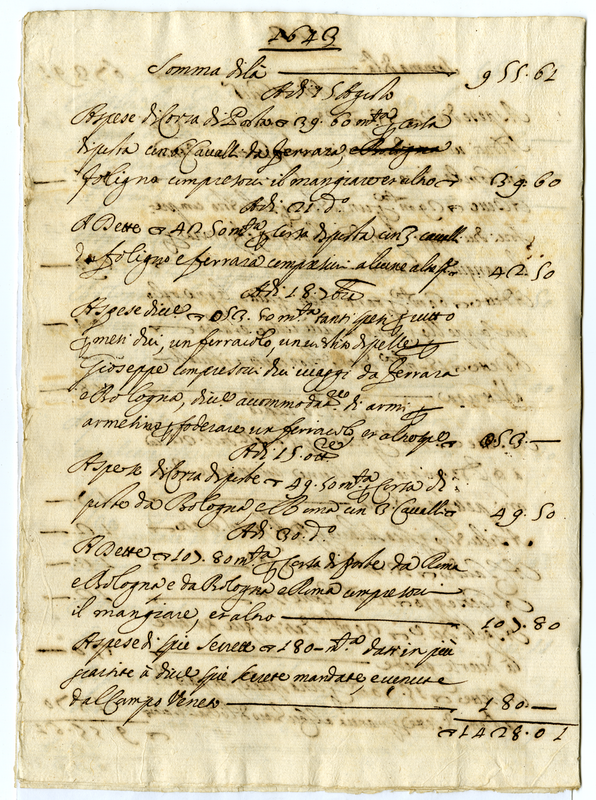 1643
Somma di là 955.61
Adi 15 Agosto
A spese di Corsa di Posta 39.60 m.ta p Corsa
di posta con 2 Cavalli da Ferrara, e Bologna
foligno compresoui il mangiare et altro 39.60
Adi 21. d.o
A Dette 42.50 m.ta p Corsa di posta con 3. cauall.
da foligno e ferrara compresoui alcune altre 42.50
Adi 18. 7bre
A spese diuerse 53.50 m.ta tanti spesi p tutto
p meti dui, un ferraiolo, un di pelle p
Gioseppe compresoui dui viaggi da Ferrara
e Bologna, diuerse accommodat.re di armi p
armetino p foderare un ferraiolo, et altro 53.—
Adi 15. ott.re
A spese di Corsa di poste 49.50 m.ta p Corsa di
poste da Bologna e Roma con 3 Caualli 49.50
Adi 30. d.o
A Dette 107.80 m.ta p Corsa di poste da Roma
e Bologna e da Bologna e Roma compresoui
il mangiare et altro 107.80
A spese di spie secrete 180— m.ta dati in più
partite à diuerse spie secrete mandate, e venute
dal Campo Veneto 180.—
1428.01